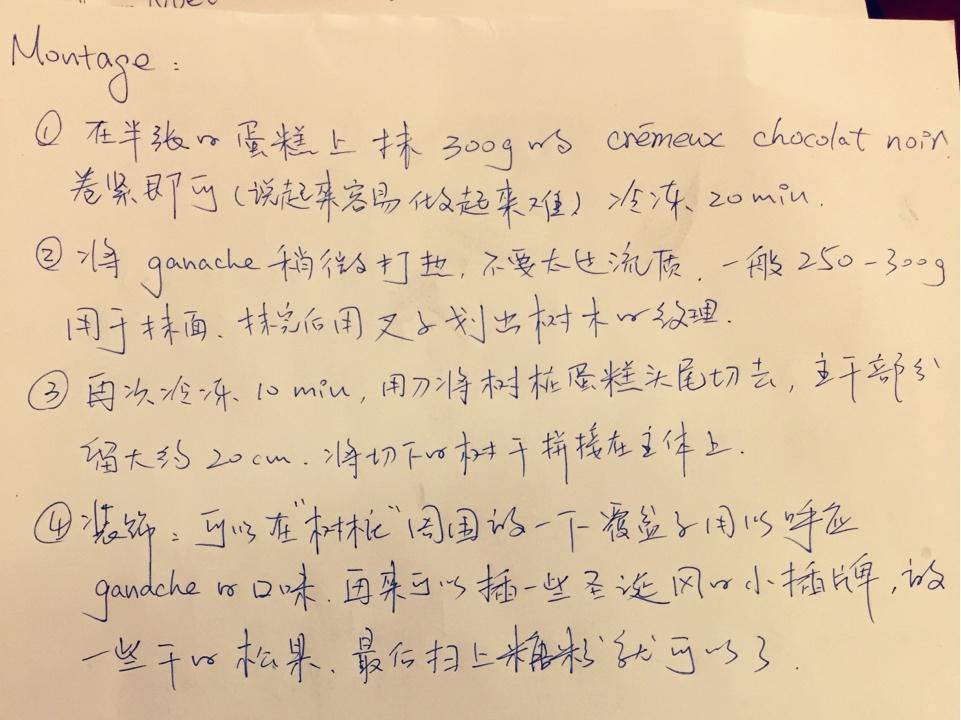 Montage:
① 在半张的蛋糕上抹300g的 crémeux chocolat noir.
卷紧即可(说起来容易做起来难)冷冻20min.
② 将 ganache 稍微打热,不要太过流质.一般250-300g
用于抹面.抹完后用叉子划出树木的纹理.
③ 再次冷冻10min,用刀将树桩蛋糕头尾切去,主干部分
留大约20cm.将切下的树干拼接在主体上.
④ 装饰:可以在"树桩"周围放一下覆盆子用以呼应
ganache的口味.再来可以插一些圣诞风的小插牌,放
一些干的松果.最后扫上糖粉就可以了.